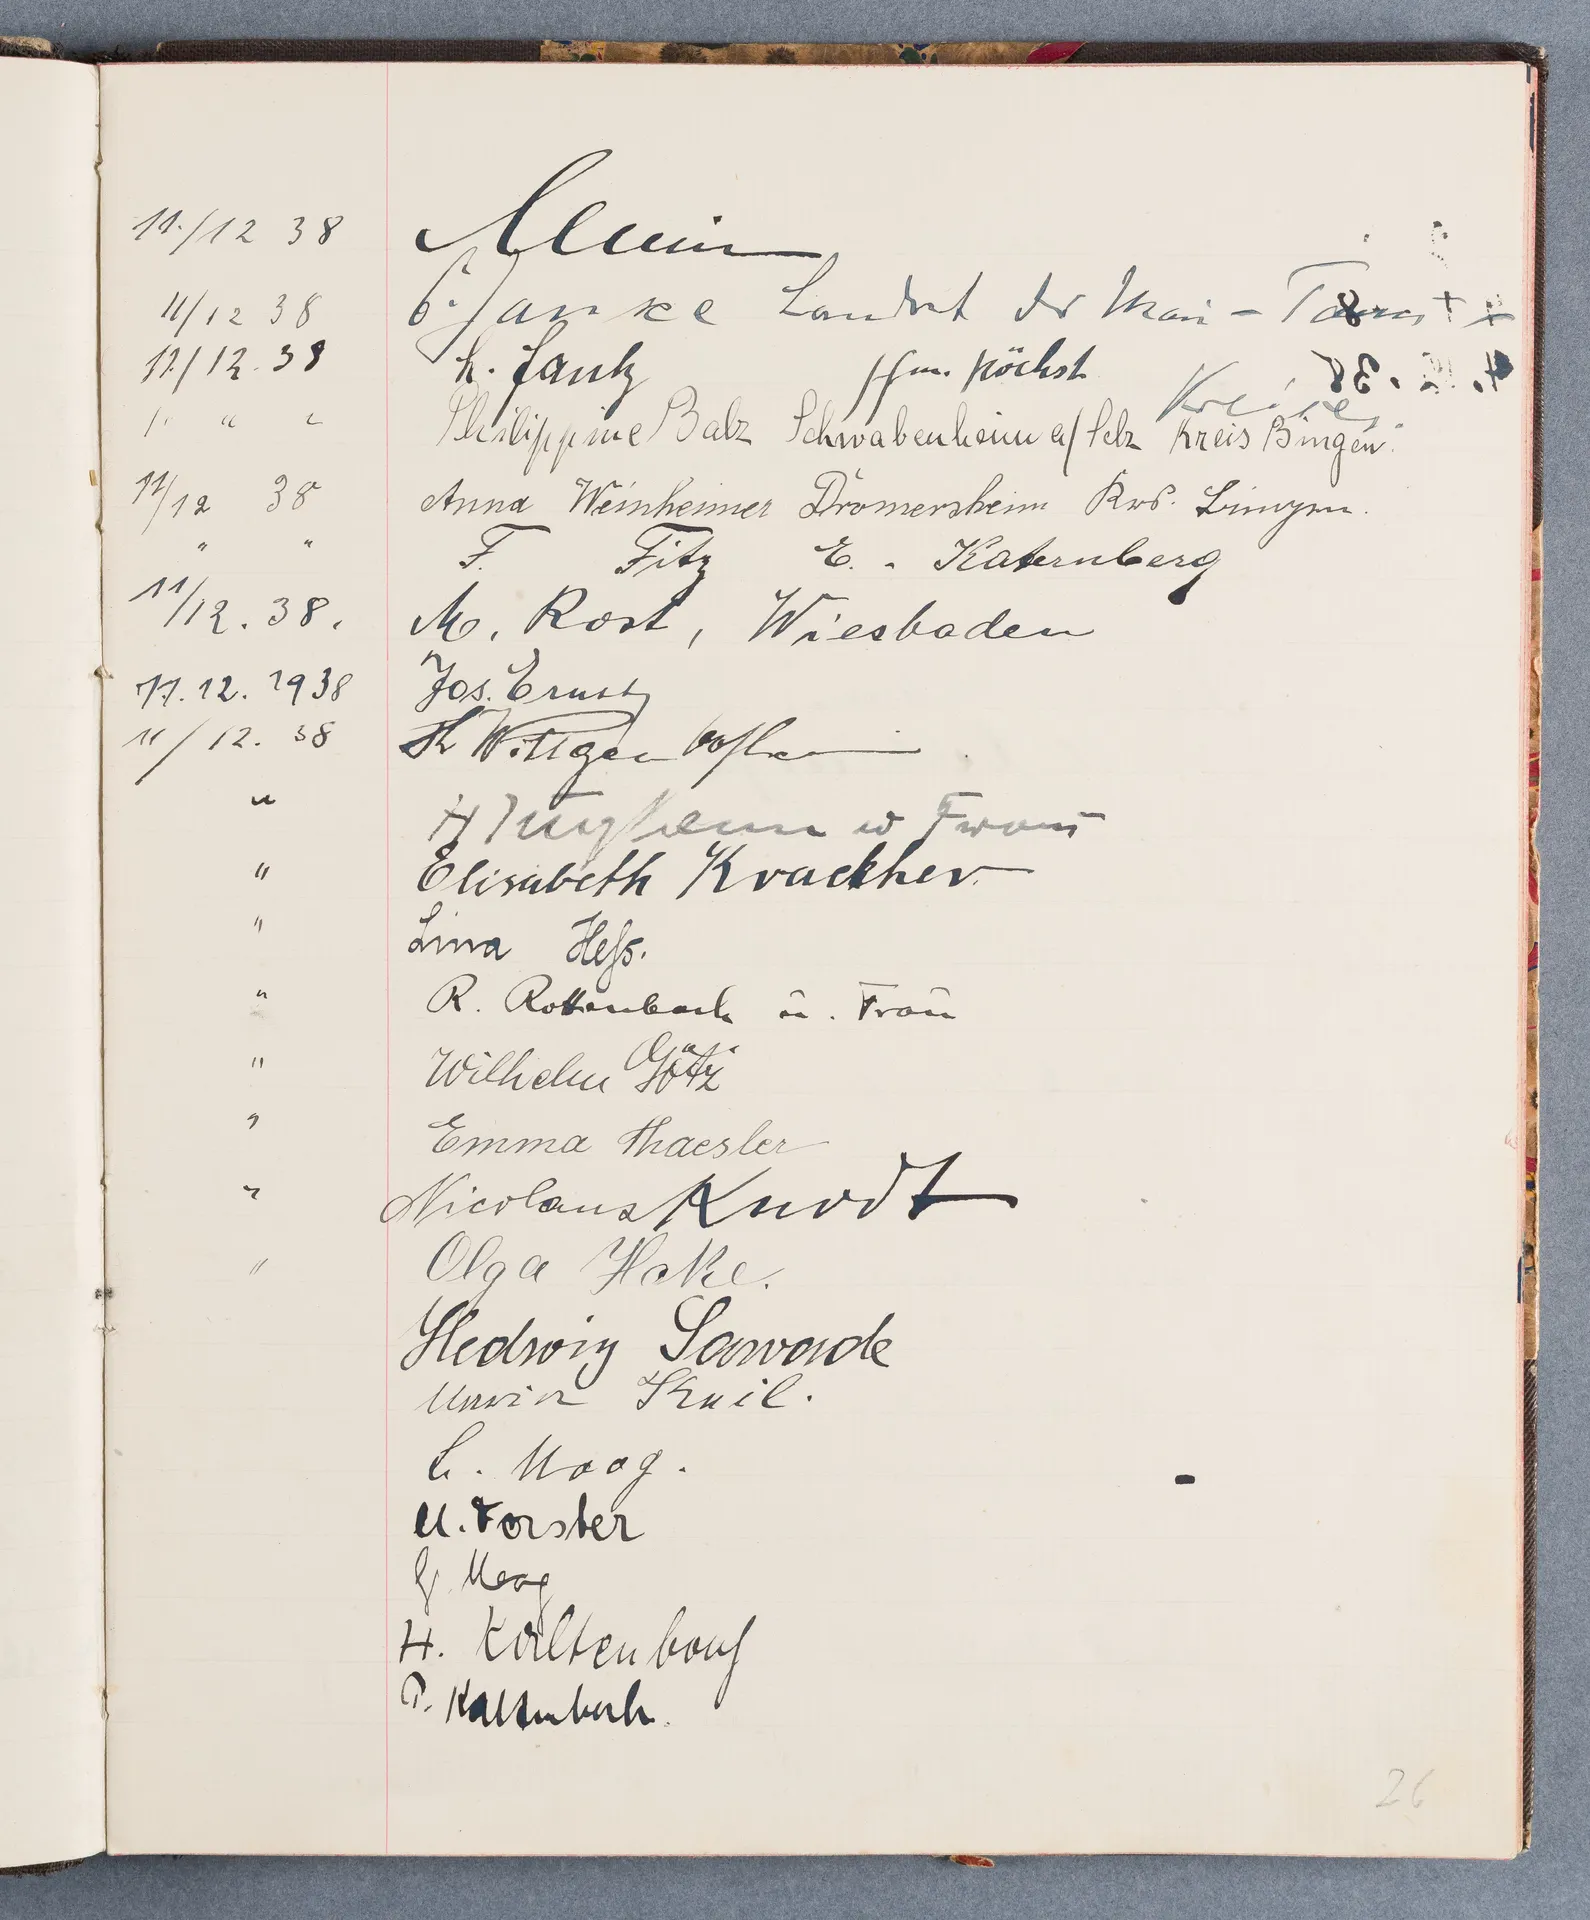 11./12 38
11/12 38 Janke Landrat der Main-Taunus
Kreises
11/12. 38 Ffm. Höchst
" " " Philippine Balz Schwabenheim a/Selz Kreis Bingen.
11/12 38 Anna Weinheimer Dromersheim Krs. Bingen.
" " F. Fitz E. - Katernberg
11/12. 38. M. Rost, Wiesbaden
11.12.1938 Jos. Ernst
11/12. 38
" H Frau
" Elisabeth Krackher.
" Lina Heß.
" R. Rottenbach u. Frau
" Wilhelm Götz
" Emma Thaesler
" Nicolaus Knodt
" Olga Hake.
Hedwig Sawade
Maria Keil.
L. Moog.
U. Forster
G. Moog
H. Kaltenbach
P. Kaltenbach.
26